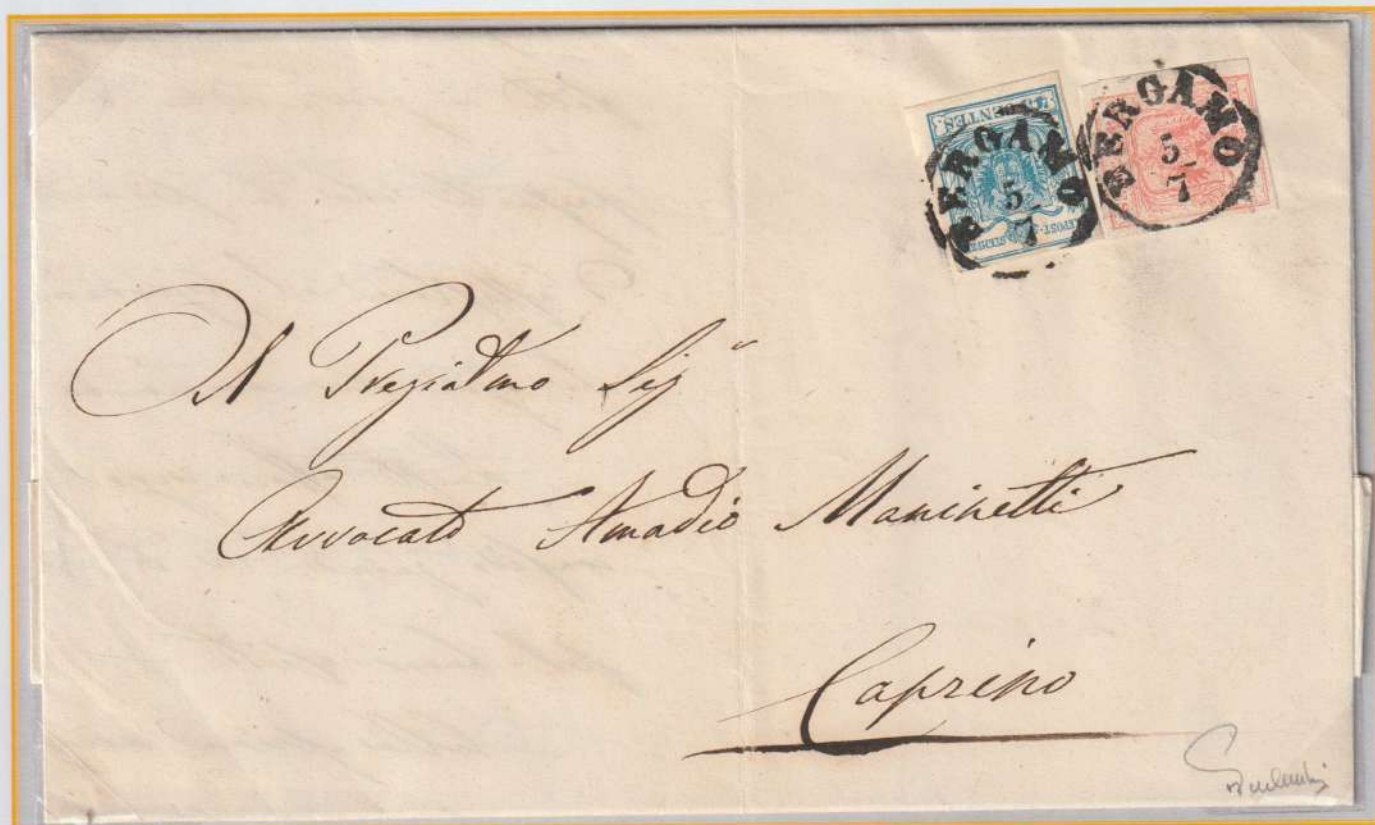 CENTES.
BERGAMO
5
7
BERGAMO
5
7
Al Pregiatmo Sigr
Avvocato Amadio Maninetti
Caprino